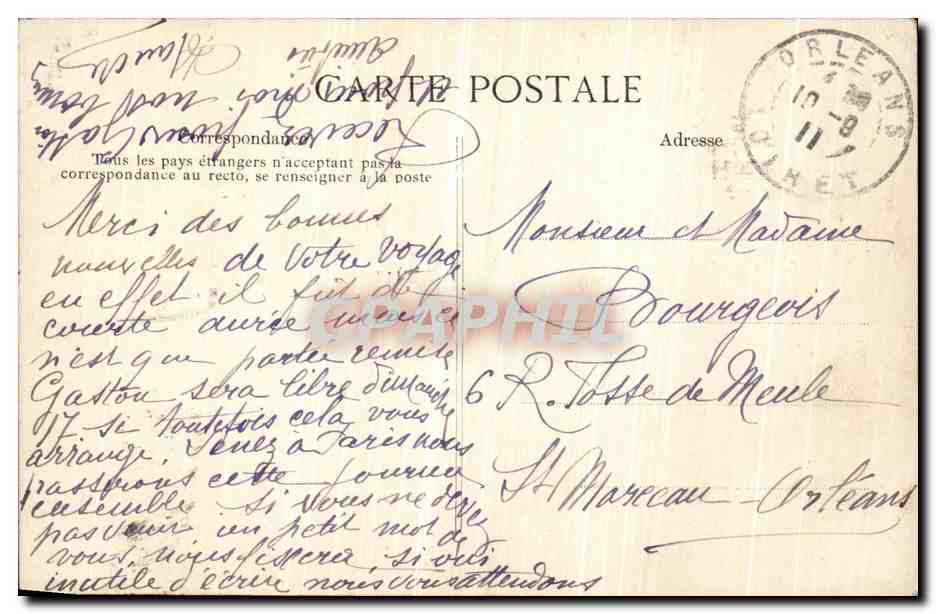 CARTE POSTALE
Correspondance
Tous les pays étrangers n'acceptant pas la
correspondance au recto, se renseigner à la poste
Adresse
ORLEANS
10 - 8
11
LOIRET
Merci des bonnes
nouvelles de votre voyage
en effet il fût de
courte durée mais ci
n'est que partie remise
Gaston sera libre dimanche
17 si toutefois cela vous
arrange. Venez à Paris nous
passerons cette journée
ensemble. Si vous ne devez
pas venir un petit mot de
vous, nous fixera si oui
inutile d'écrire nous vous attendons
Recevez pour Gaston
et pour moi nos bonnes
amitiés
Monsieur et Madame
Bourgeois
6 R. Fosse de Meule
St Marceau - Orléans
CPAPHIL